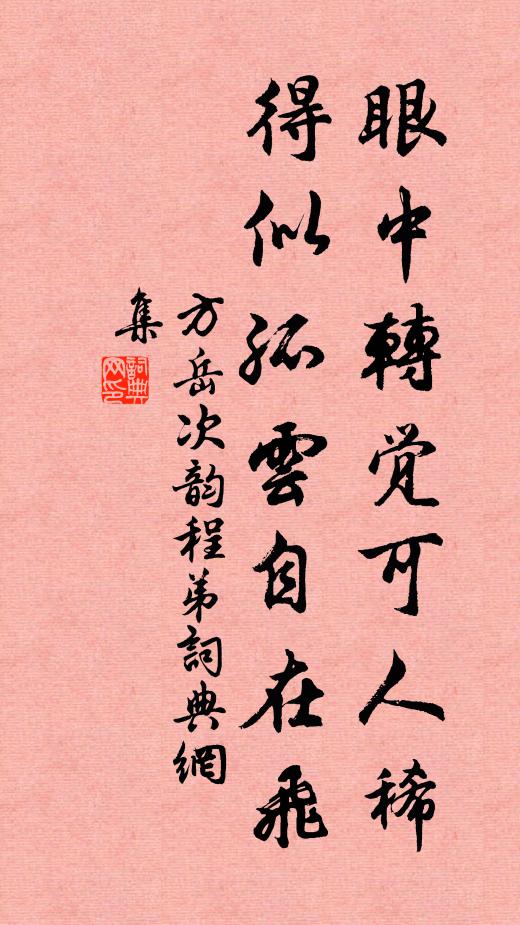 眼中轉覺可人稀
得似孤雲自在飛
方岳次韵程弟詞典網
集
詞典网印